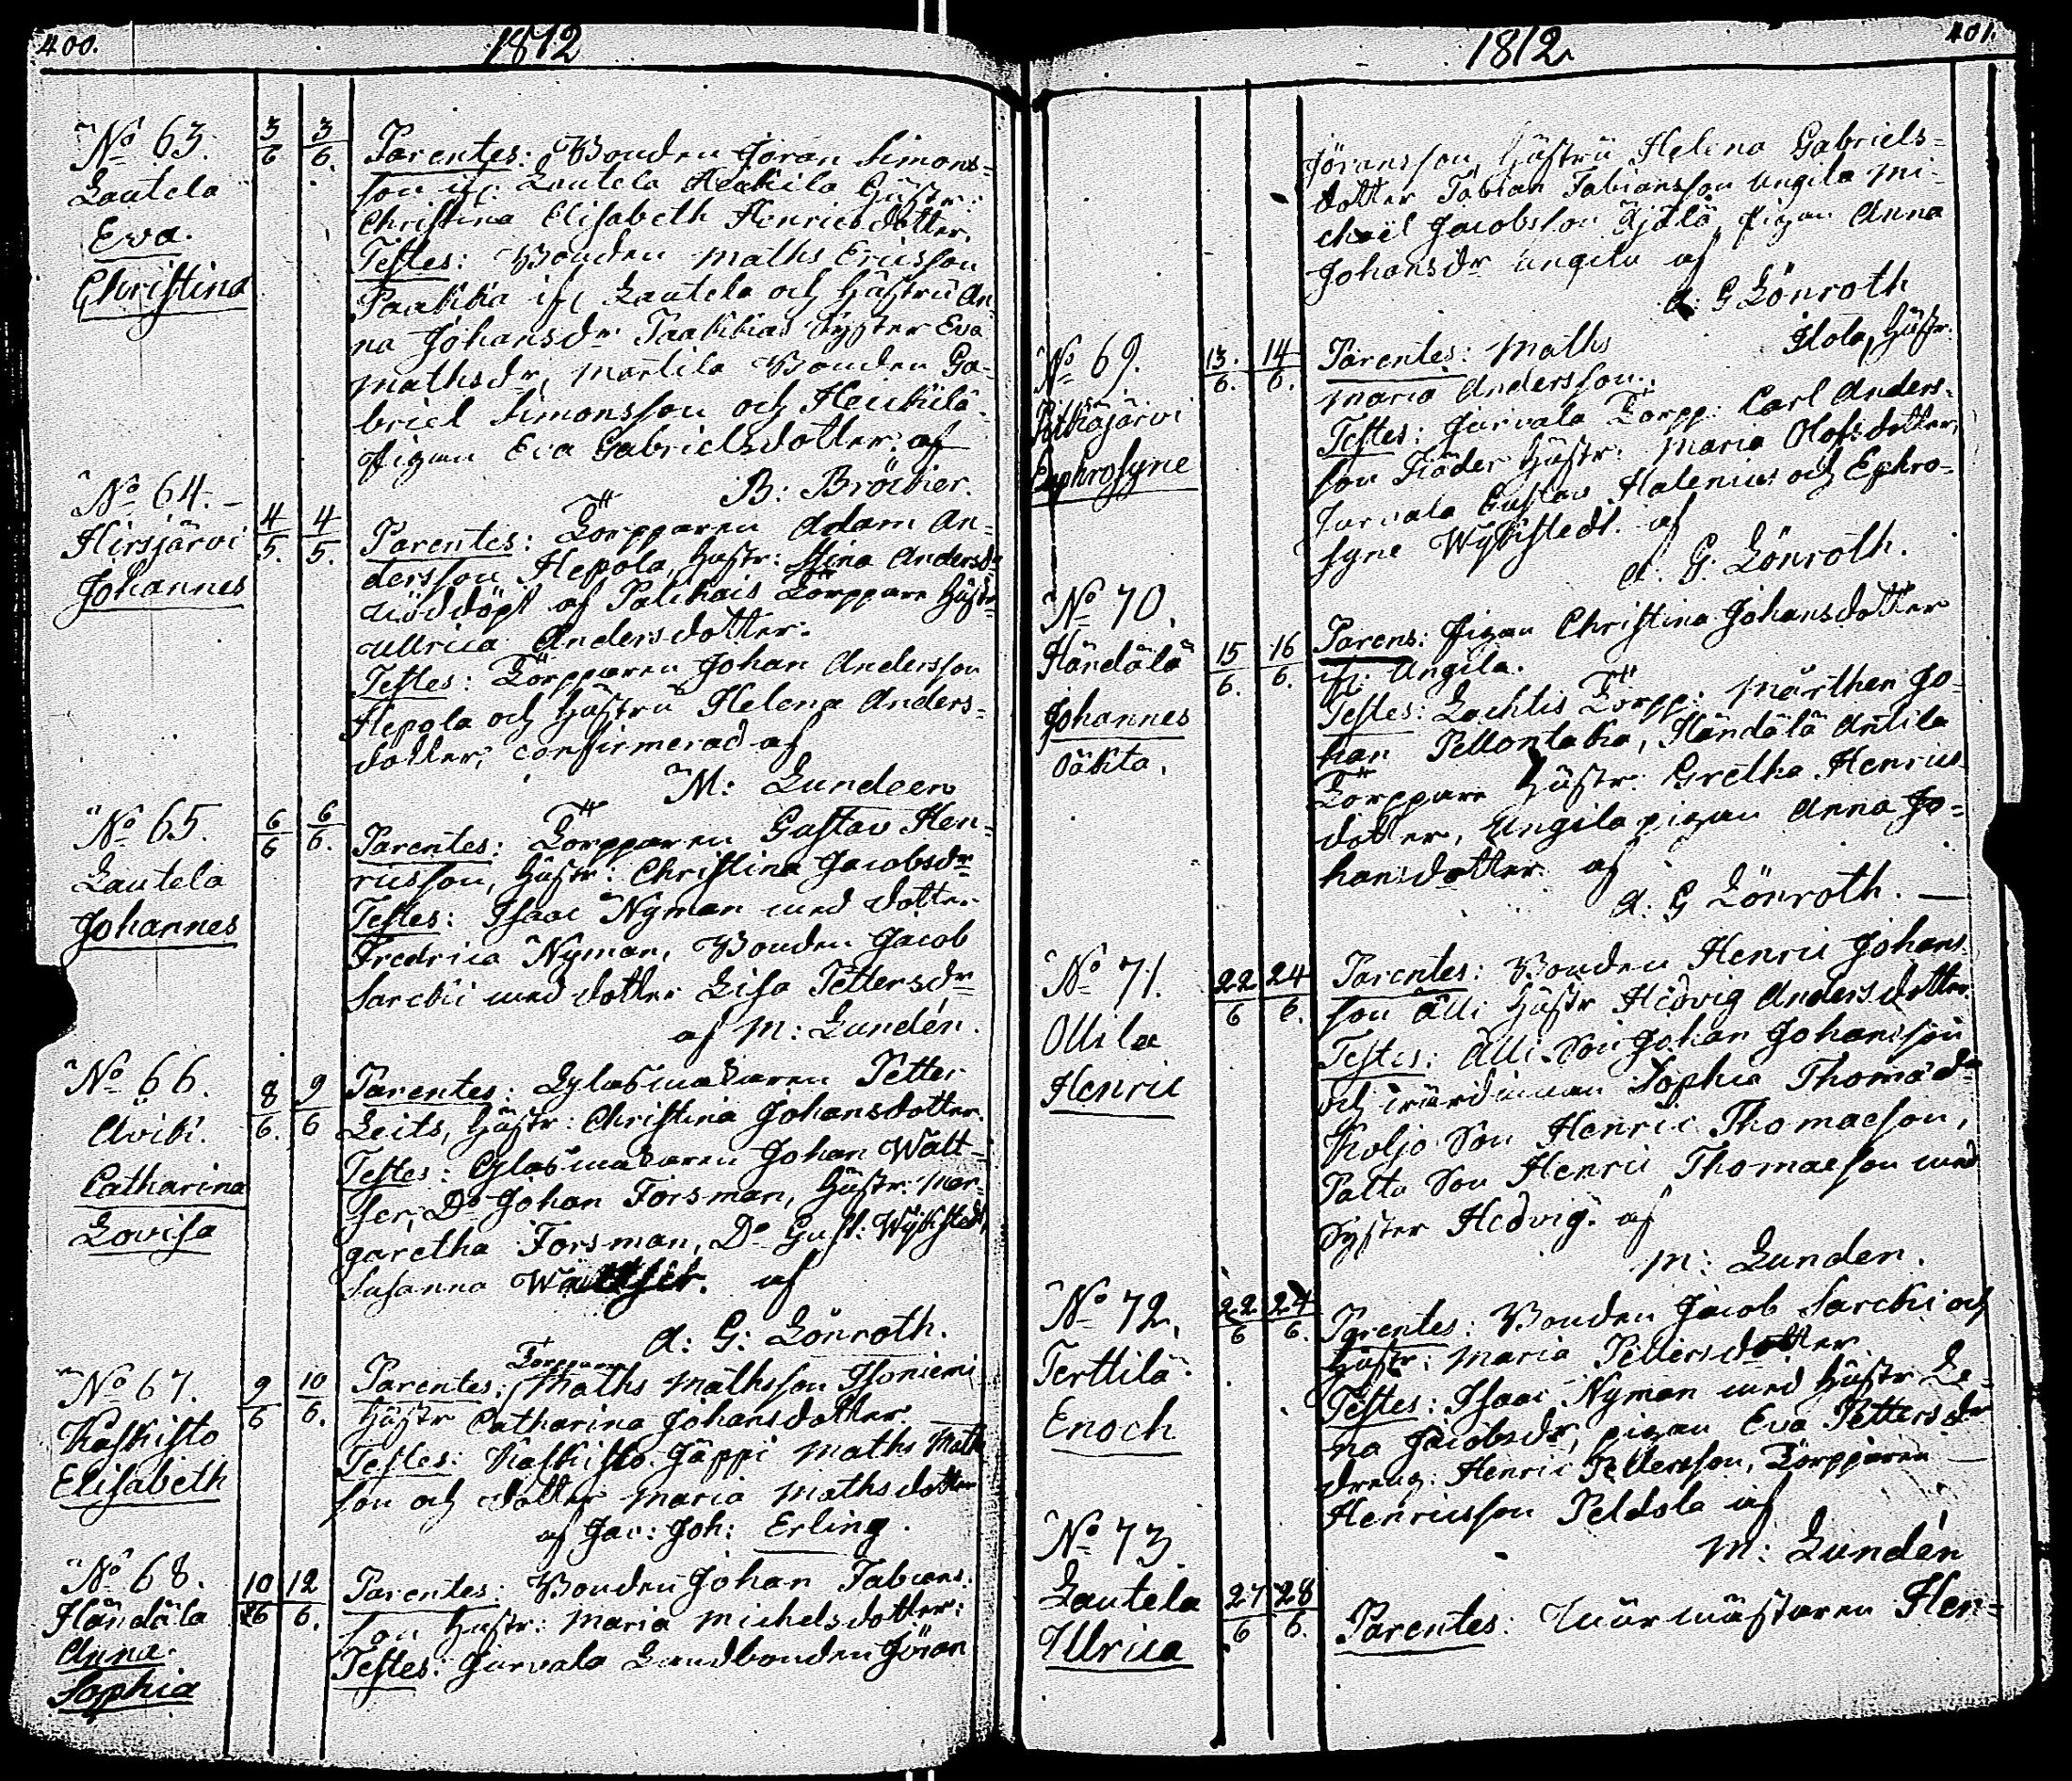 400.
1812
No 63.
Lautela
Eva.
Christina
3/6
3/6.
Parentes: Bonden Jöran Simons-
son ifr. Lautela Heikilä Hustr:
Christina Elisabeth Henricsdotter.
Testes: Bonden Maths Ericsson
Paakka ifr Lautela och Hustru An-
na Johansdr Paakkas Syster Eva
Mathsdr, Marttila Bonden Ga-
briel Simonsson och Heickilä
Pigan Eva Gabrielsdotter: af
B: Bröcker.
No 64.
Hirsjärvi
Johannes
4/5.
4/5.
Parentes: Torpparen Adam An-
dersson Hepola, Hustr: Stina Andersdr
nöddöpt af Palikais Torppare Hustr
Ullrica Andersdotter.
Testes: Torpparen Johan Andersson
Hepola och Hustru Helena Anders-
dotter, confirmerad af
M: Lundeen
No 65.
Lautela
Johannes
6/6
6/6.
Parentes: Torpparen Gustav Hen-
ricsson, Hustr: Christina Jacobsdr
Testes: Isaac Nyman med dotter
Fredrica Nyman, Bonden Jacob
Sarcki med dotter Lisa Pettersdr
af M: Lundén.
No 66.
Avik.
Catharina
Lovisa
8/6.
9/6
Parentes: Glasmakaren Petter
Leits, Hustr: Christina Johansdotter.
Testes: Glasmakaren Johan Walt-
ser, Do Johan Forsman, Hustr: Mar-
garetha Forsman, Do Gust: Wykstedt,
Susanna Waltser. af
A: G: Lönroth.
No 67.
Kaskisto
Elisabeth
9/6
10/6.
Torpparen
Parentes: Maths Mathsson Isoniemi
Hustr Catharina Johansdotter.
Testes: Kaskisto Jäppi Maths Maths
son och dotter Maria Mathsdotter
af Jac: Joh: Erling.
No 68.
Händälä
Anna
Sophia
10/6
12/6.
Parentes: Bonden Johan Fabians-
son Hustr: Maria Michelsdotter:
Testes: Jurvala Landbonden Jöran
401.
1812.
Jöransson, Hustru Helena Gabriels-
dotter Fabian Fabiansson Ungila Mi-
chäël Jacobsson Kjälä, Pigan Anna
Johansdr Ungila af
A: G Lönroth
No 69.
Pitkäjärvi
Euphrosyne
13./6.
14/6.
Parentes: Maths Hola, Hustr:
Maria Andersson.
Testes: Jurvala Torpp: Carl Anders-
son Fiäder Hustr: Maria Olofsdotter,
Jurvala Gustav Halenius och Ephro-
syne Wykstedt. af
A: G: Lönroth.
No 70.
Händälä
Johannes
oäkta.
15/6.
16/6.
Parens: Pigan Christina Johansdotter
ifr: Ungila.
Testes: Lachtis Torpp: Mårthen Jo-
han Pellontaka, Händälä Antila
Torppare Hustr: Gretha Henrics-
dotter, Ungila pigan Anna Jo-
hansdotter. af
A: G Lönroth.
No 71.
Ollila
Henric
22/6
24/6.
Parentes: Bonden Henric Johans-
son Älli Hustr Hedvig Andersdotter.
Testes: Älli Son Johan Johansson
och Värdinnan Sophia Thomædr
Koljo Son Henric Thomaeson,
Patto Son Henric Thomaeson med
Syster Hedvig. af
M: Lunden.
No 72.
Terttilä
Enoch
22/6
24/6.
Parentes: Bonden Jacob Sarcki och
Hustr: Maria Pettersdotter
Testes: Isaac Nyman med Hustr Le-
na Jacobsdr, pigan Eva Pettersdr
dreng: Henric Pettersson, Torpparen
Henricsson Peldola af
M: Lundén
No 73.
Lautela
Ulrica
27/6
28/6.
Parentes: Murmästaren Hen-